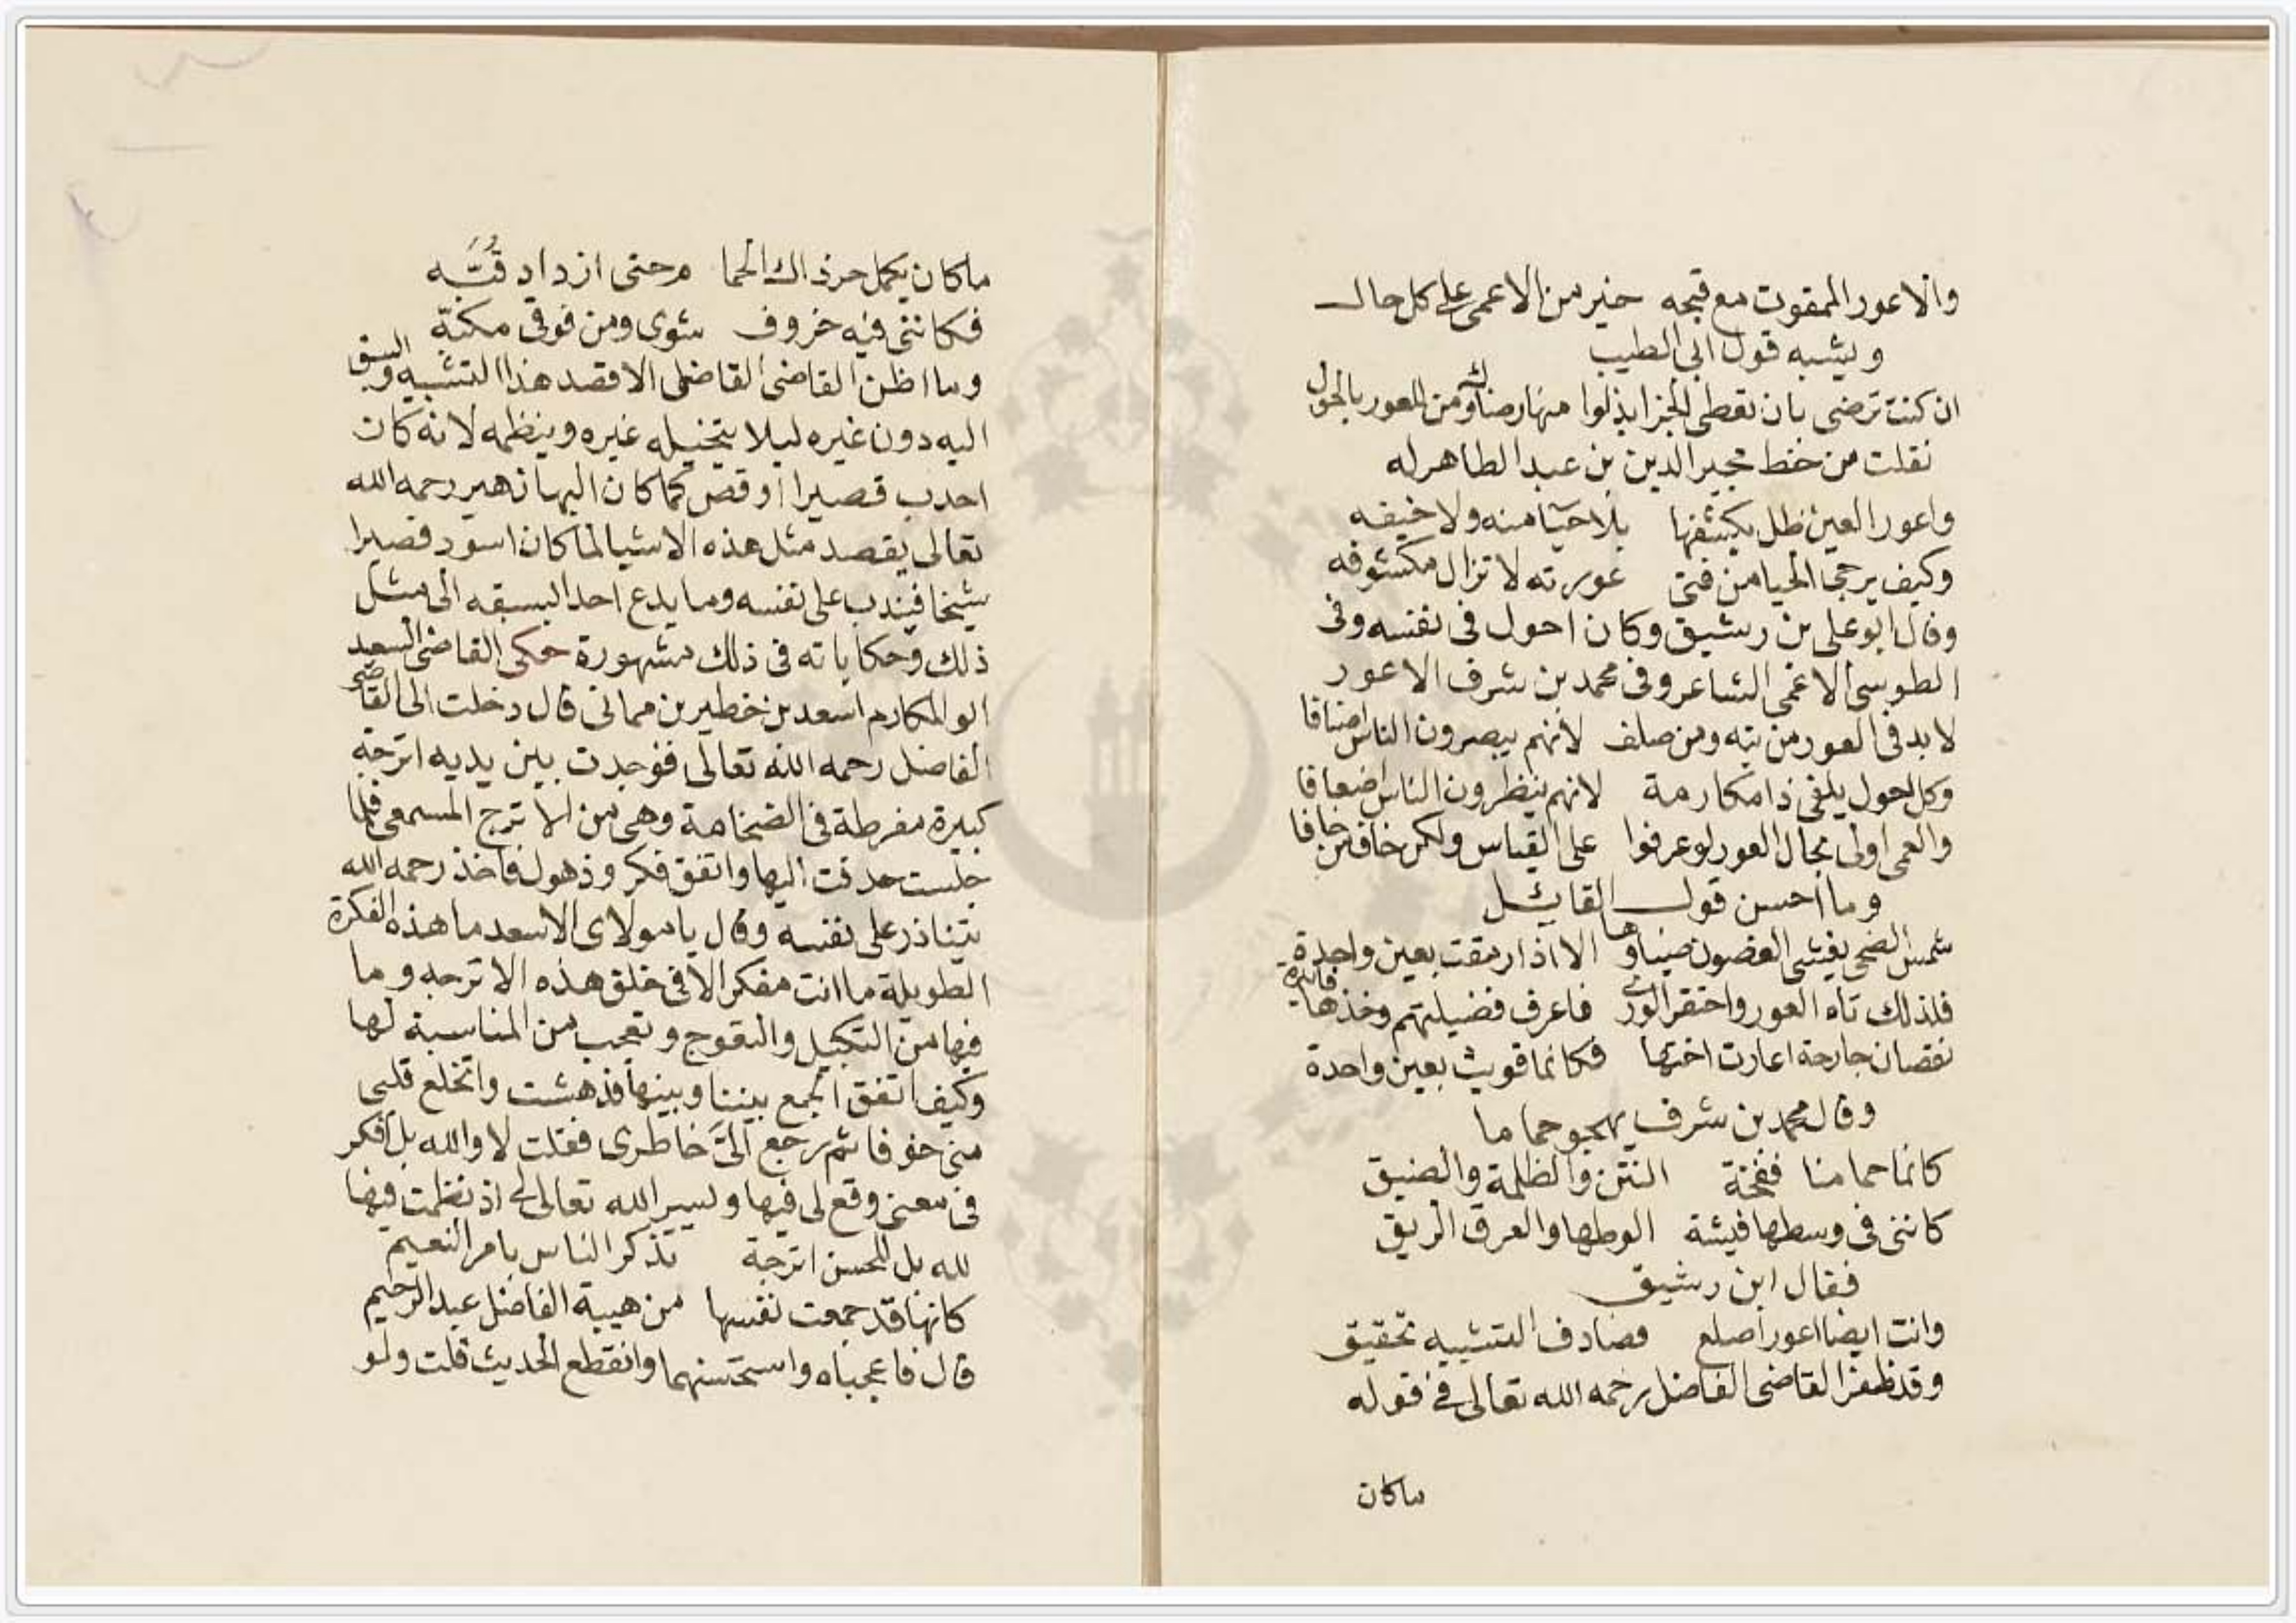 والاعور الممقوت مع قبحه خير من الاعمى على كل حال
ويشبه قول ابي الطيب
ان كنت ترضى بان نعطى الجزا بذلوا منها رضاك ومن للعور بالحول
نقلت من خط مجير الدين بن عبد الطاهر له
واعور العين ظل يكشفها بلا حيا منه ولا خيفه
وكيف يرجى الحيا من فتى عورته لا تزال مكشوفه
وقال ابو على بن رشيق وكان احول فى نفسه وفى
الطوسى الاعمى الشاعر وفى محمد بن شرف الاعور
لا بد فى العور من تيه ومن صلف لانهم يبصرون الناس انصافا
وكل احول يلفى ذا مكارمة لانهم ينظرون الناس اضعافا
والعمى اولى بحال العور لو عرفوا على القياس ولكن خاف من خافا
وما احسن قول القايل
شمس الضحى يغشى العضون ضياوها الا اذا رمقت بعين واحدة
فلذلك تاه العور واحتقر الورى فاعرف فضيلتهم وخذها فايدة
نقصان جارحة اعارت اختها فكانما قويت بعين واحدة
وقال محمد بن شرف يهجو حماما
كانما حمامنا فقحة النتن والظلمة والضيق
كاننى فى وسطها فيشة الوطها والعرق الريق
فقال ابن رشيق
وانت ايضا اعور اصلع فصادف التشبيه تحقيق
وقد ظفر القاضى الفاضل رحمه الله تعالى فى قوله
ماكان
ماكان يكمل حر ذاك الحما م حتى ازداد قبه
فكاننى فيه خروف شوى ومن فوقى مكبه
وما اظن القاضى الفاضل الا قصد هذا التشبيه والسبق
اليه دون غيره ليلا يتخيله غيره وينظمه لانه كان
احدب قصيرا اوقص كما كان البها زهير رحمه الله
تعالى يقصد مثل هذه الاشيا لما كان اسود قصيرا
شيخا فيندب على نفسه وما يدع احدا ليسبقه الى مثل
ذلك وحكاياته فى ذلك مشهورة حكى القاضى السعيد
ابو المكارم اسعد بن خطير بن مماتى قال دخلت الى القاضى
الفاضل رحمه الله تعالى فوجدت بين يديه اترجة
كبيرة مفرطة فى الضخامة وهى من الاترج المسمعى فلما
جلست حدقت اليها واتفق فكر وذهول فاخذ رحمه الله
يتنادر على نفسه وقال يا مولاى الاسعد ما هذه الفكرة
الطويلة ما انت مفكر الا فى خلق هذه الاترجه وما
فيها من التكتيل والتعوج وتعجب من المناسبة لها
وكيف اتفق الجمع بيننا وبينها فدهشت وانخلع قلبى
منى خوفا ثم رجع الىّ خاطرى فقلت لا والله بل افكر
فى معنى وقع لى فيها ويسر الله تعالى لى اذ نظمت فيها
لله بل للحسن اترجة تذكر الناس بامر النعيم
كانها قد جمعت نفسها من هيبة الفاضل عبد الرحيم
قال فاعجباه واستحسنهما وانقطع الحديث قلت ولو